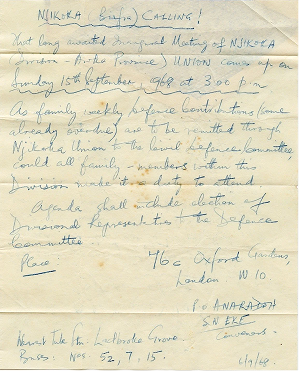 NJIKOKA (Biafra) CALLING!
That long awaited Inaugural Meeting of NJIKOKA
(Division - Awka Province) UNION comes up on
Sunday 15th September, 1968 at 3:00 p.m
As family weekly Defence Contributions (some
already overdue) are to be remitted through
Njikoka Union to the level Defence Committee,
could all family-members within this
Division make it a duty to attend
Agenda shall include election of
Divisional Representatives to the Defence
Committee.
Place
46c Oxford Gardens,
London W 10.
P.O ANARADOH
S.N EKE
Convenors.
Nearest Tube Stn. Ladbroke Grove.
Buses: Nos. 52, 7, 15.